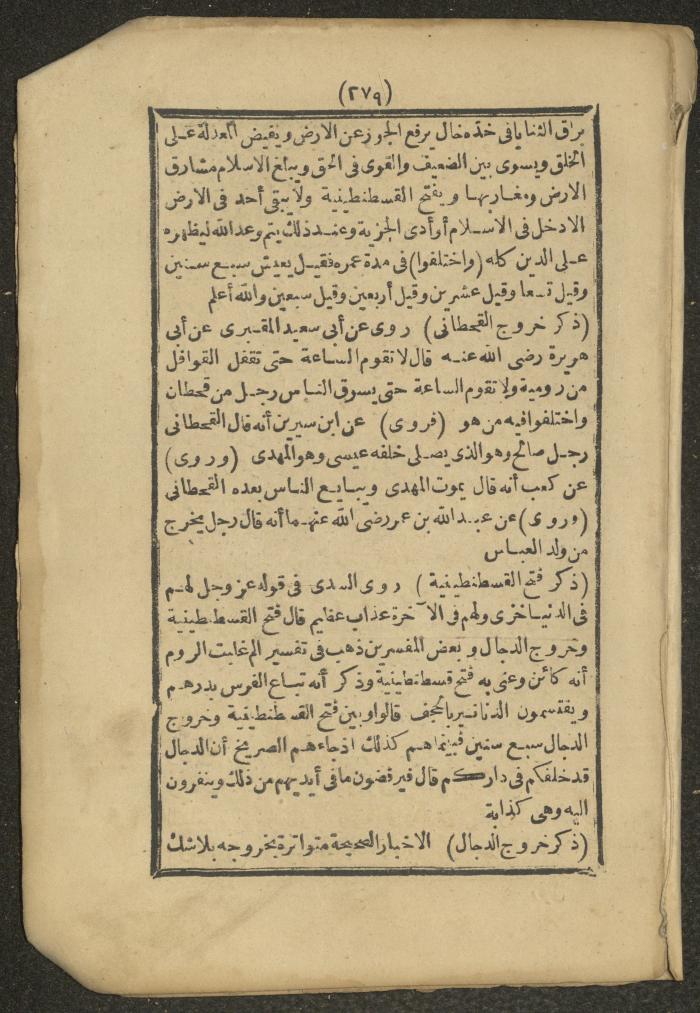 (٢٧٩)
براق الثنايا فى خده خال يرفع الجور عن الارض ويفيض المعدلة على
الخلق ويسوى بين الضعيف والقوى فى الحق ويبلغ الاسلام مشارق
الارض ومغاربها ويفتح القسطنطينية ولا يبقى أحد فى الارض
الا دخل فى الاسلام أو أدى الجزية وعند ذلك يتم وعد الله ليظهره
على الدين كله (واختلفوا) فى مدة عمره فقيل يعيش سبع سنين
وقيل تسعا وقيل عشرين وقيل أربعين وقيل سبعين والله أعلم
(ذكر خروج القحطانى) روى عن أبى سعيد المقبرى عن أبى
هريرة رضى الله عنه قال لا تقوم الساعة حتى تقفل القوافل
من رومية ولا تقوم الساعة حتى يسوق الناس رجل من قحطان
واختلفوا فيه من هو (فروى) عن ابن سيرين أنه قال القحطانى
رجل صالح وهو الذى يصلى خلفه عيسى وهو المهدى (وروى)
عن كعب أنه قال يموت المهدى ويبايع الناس بعده القحطانى
(وروى) عن عبد الله بن عمر رضى الله عنهما أنه قال رجل يخرج
من ولد العباس
(ذكر فتح القسطنطينية) روى السدى فى قوله عز وجل لهم
فى الدنيا خزى ولهم فى الآخرة عذاب عظيم قال فتح القسطنطينية
وخروج الدجال وبعض المفسرين ذهب فى تفسير الم غلبت الروم
أنه كائن وعنى به فتح قسطنطينية وذكر أنه تباع الفرس بدرهم
ويقتسمون الدنانير بالجحف قالوا وبين فتح القسطنطينية وخروج
الدجال سبع سنين فبينما هم كذلك اذ جاءهم الصريخ أن الدجال
قد خلفكم فى داركم قال فيرفضون ما فى أيديهم من ذلك وينفرون
اليه وهى كذابة
(ذكر خروج الدجال) الاخبار الصحيحة متواترة بخروجه بلا شك